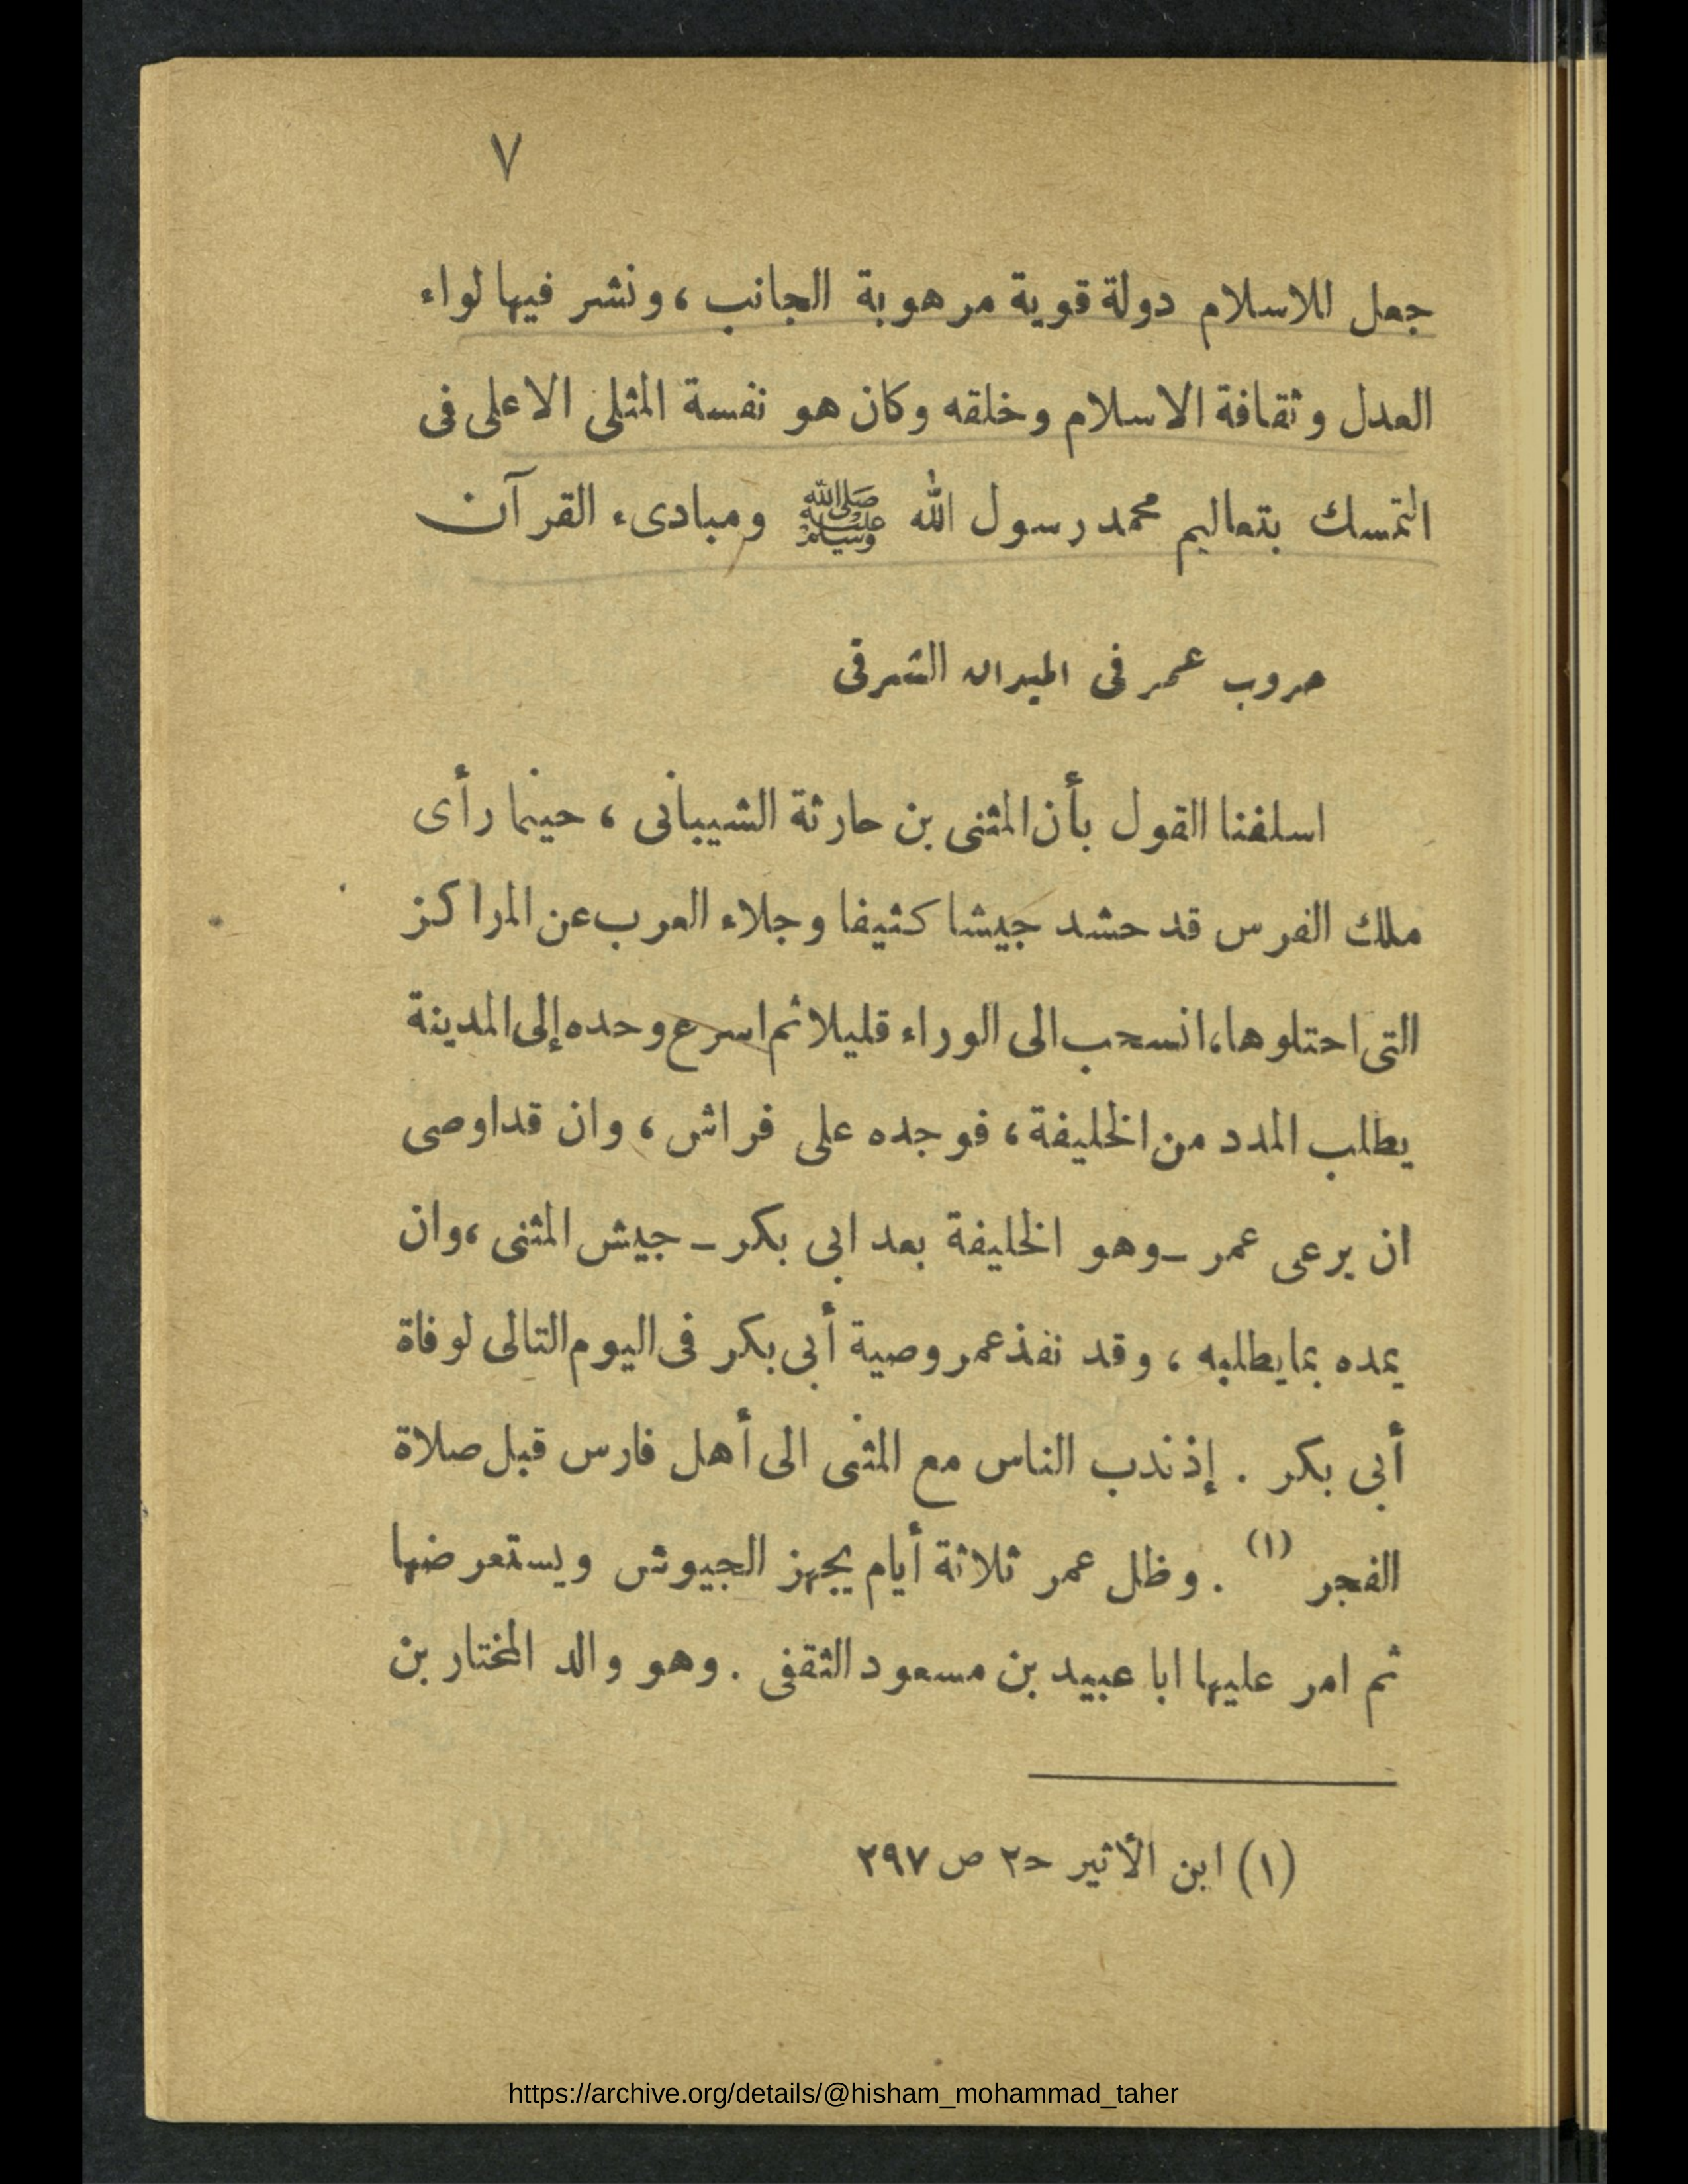 ٧
جعل للاسلام دولة قوية مرهوبة الجانب ، ونشر فيها لواء
العدل وثقافة الاسلام وخلقه وكان هو نفسة المثلى الاعلى فى
التمسك بتعاليم محمد رسول الله ﷺ ومبادىء القرآن
حروب عمر فى الميدان الشرقى
اسلفنا القول بأن المثنى بن حارثة الشيبانى ، حينما رأى
ملك الفرس قد حشد جيشا كثيفا وجلاء العرب عن المراكز
التى احتلوها، انسحب الى الوراء قليلا ثم اسرع وحده إلى المدينة
يطلب المدد من الخليفة ، فوجده على فراش ، وان قد اوصى
ان يرعى عمر ـ وهو الخليفة بعد ابى بكر ـ جيش المثنى ، وان
يمده بما يطلبه ، وقد نفذ عمر وصية أبى بكر فى اليوم التالى لوفاة
أبى بكر . إذ ندب الناس مع المثنى الى أهل فارس قبل صلاة
الفجر (١) . وظل عمر ثلاثة أيام يجهز الجيوش ويستعرضها
ثم امر عليها ابا عبيد بن مسعود الثقفى . وهو والد المختار بن
(١) ابن الأثير حـ٢ ص ٢٩٧
https://archive.org/details/@hisham_mohammad_taher